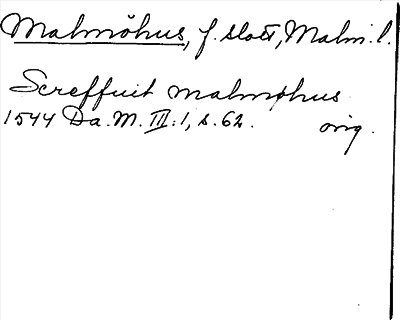 Malmöhus, f. slott, Malm. l.
Screffuit malmøhus
1544 Da. M. III: 1, s. 62. orig.